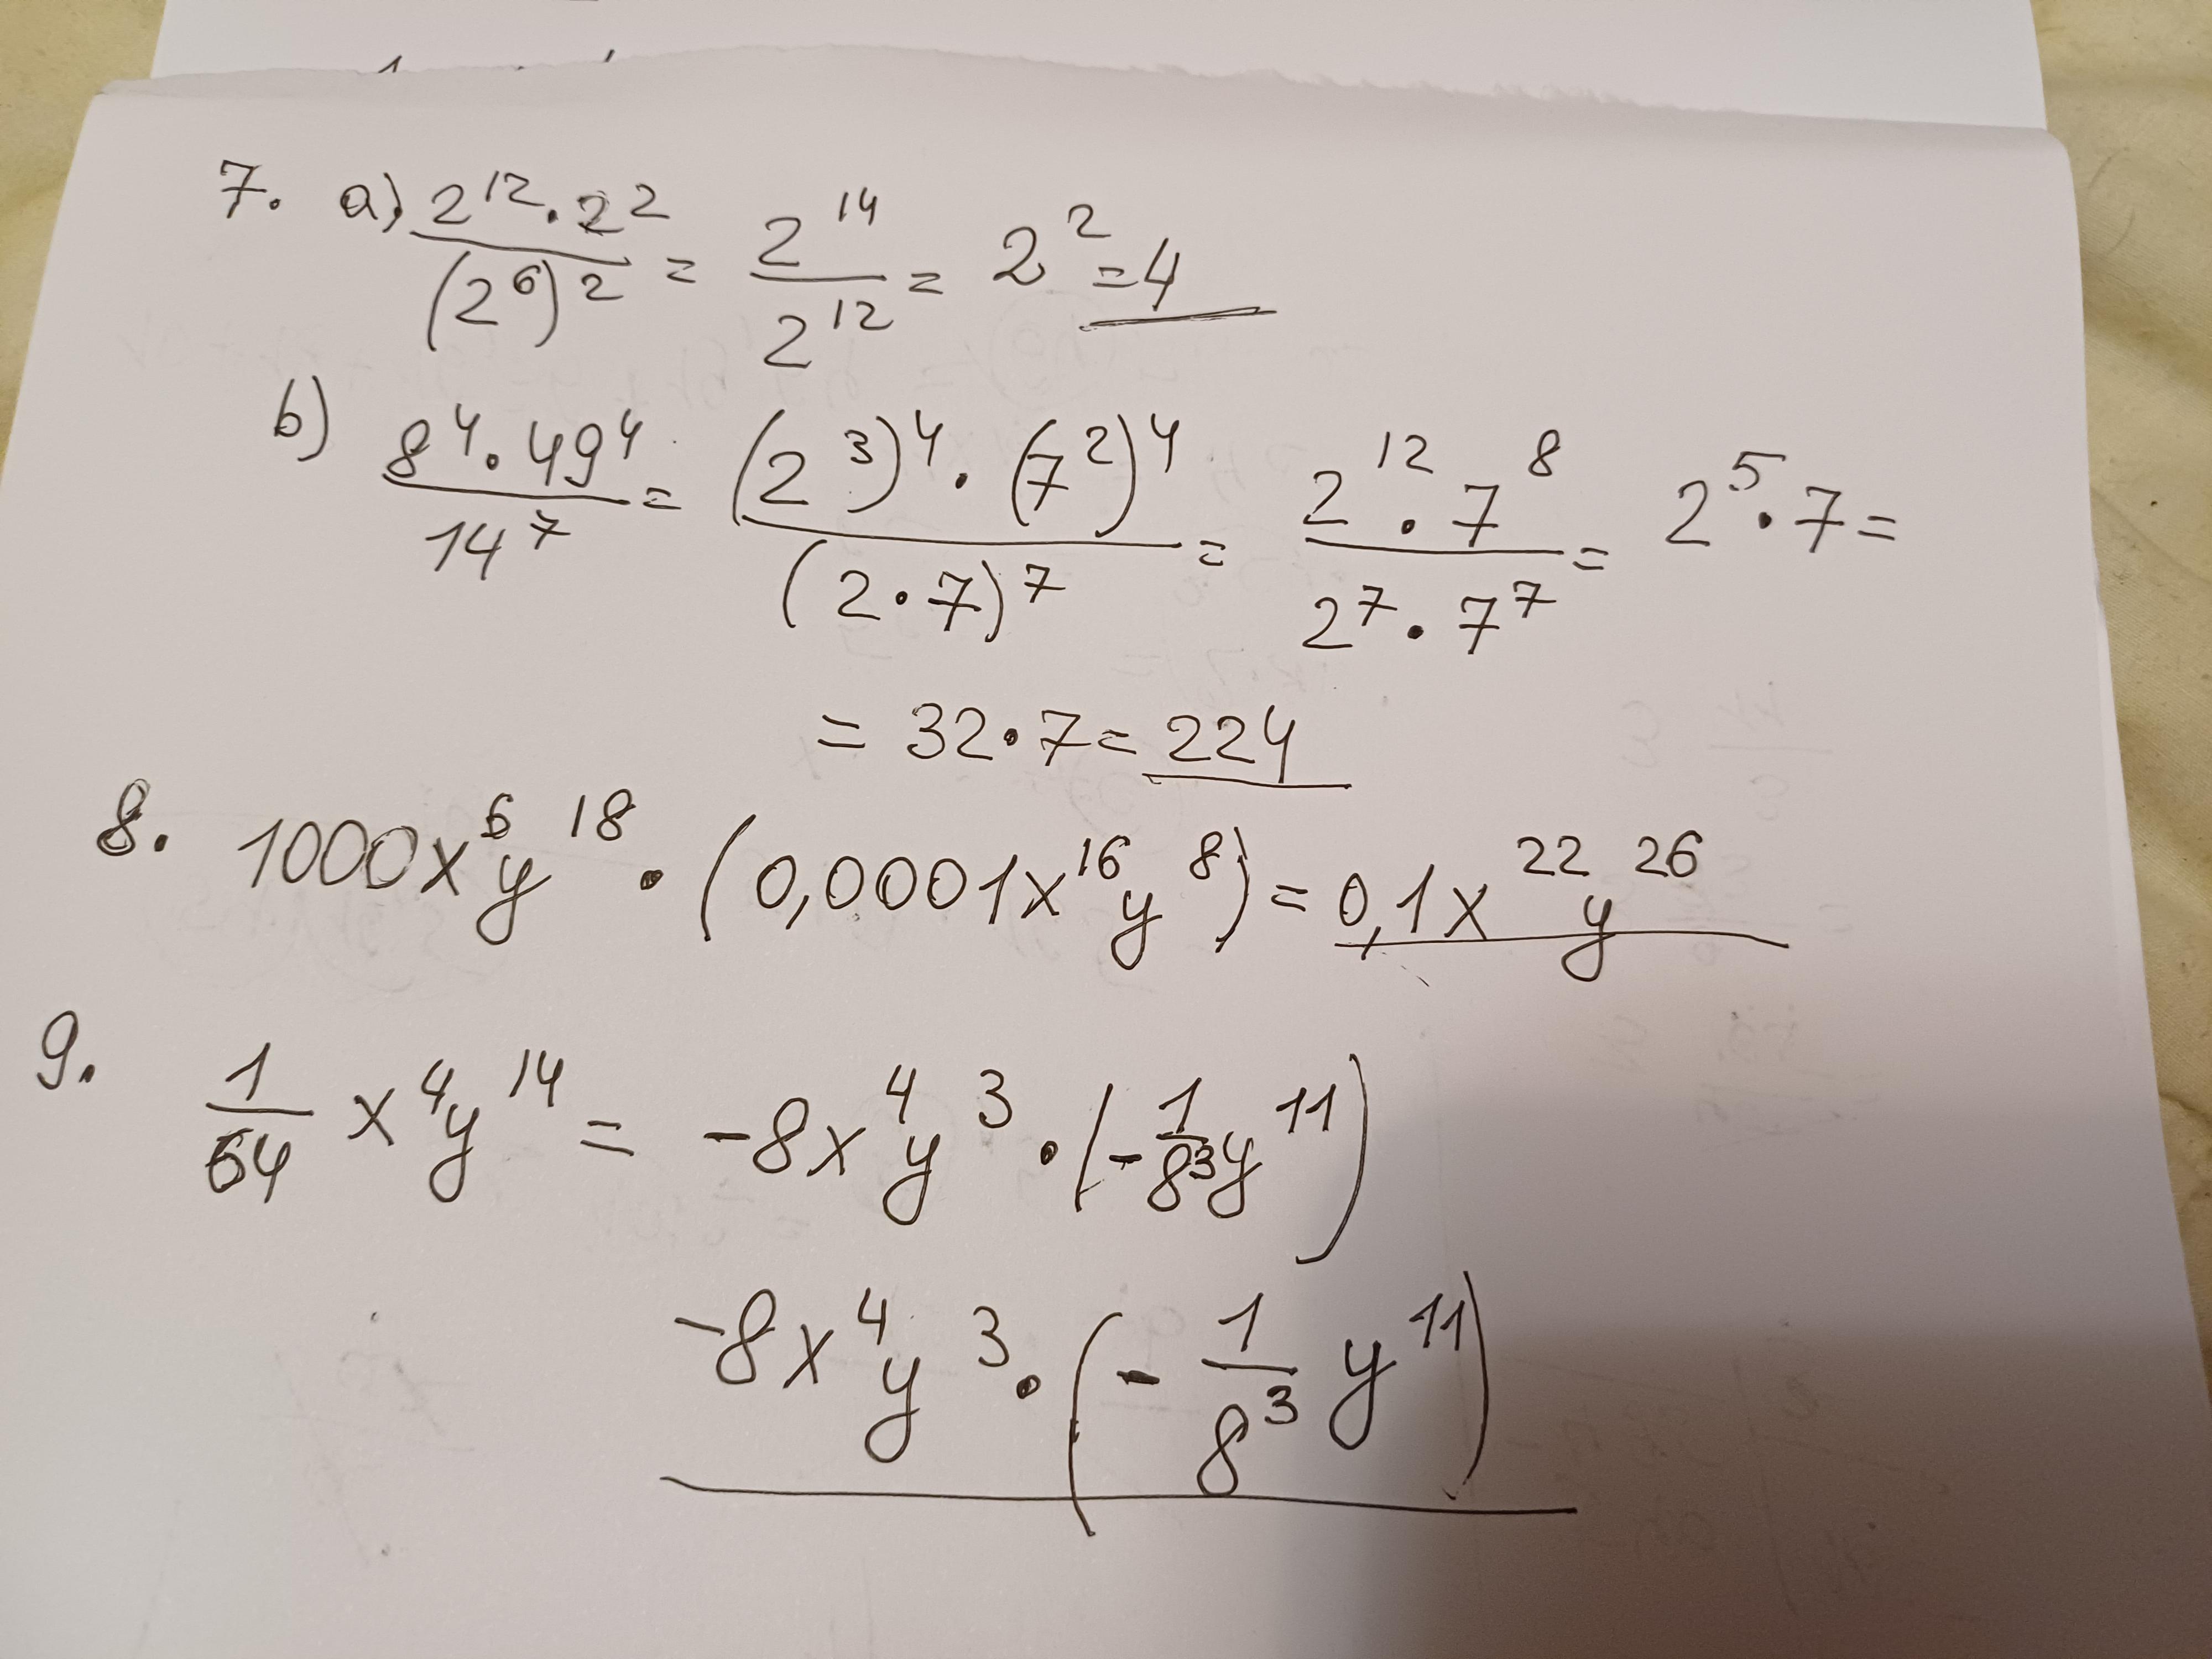 7. a) 2^12 · 2^2 / (2^6)^2 = 2^14 / 2^12 = 2^2 = 4
b) 8^4 · 49^4 / 14^7 = (2^3)^4 · (7^2)^4 / (2·7)^7 = 2^12 · 7^8 / 2^7 · 7^7 = 2^5 · 7 =
= 32·7 = 224
8. 1000x^6y^18 · (0,0001x^16y^8) = 0,1x^22y^26
9. 1/64 x^4y^14 = -8x^4y^3 · (-1/8^3 y^11)
-8x^4y^3 · (-1/8^3 y^11)